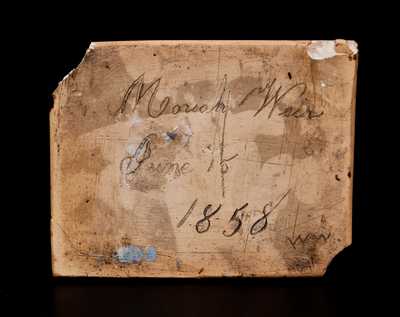 Moriah Weir
June 15
1858